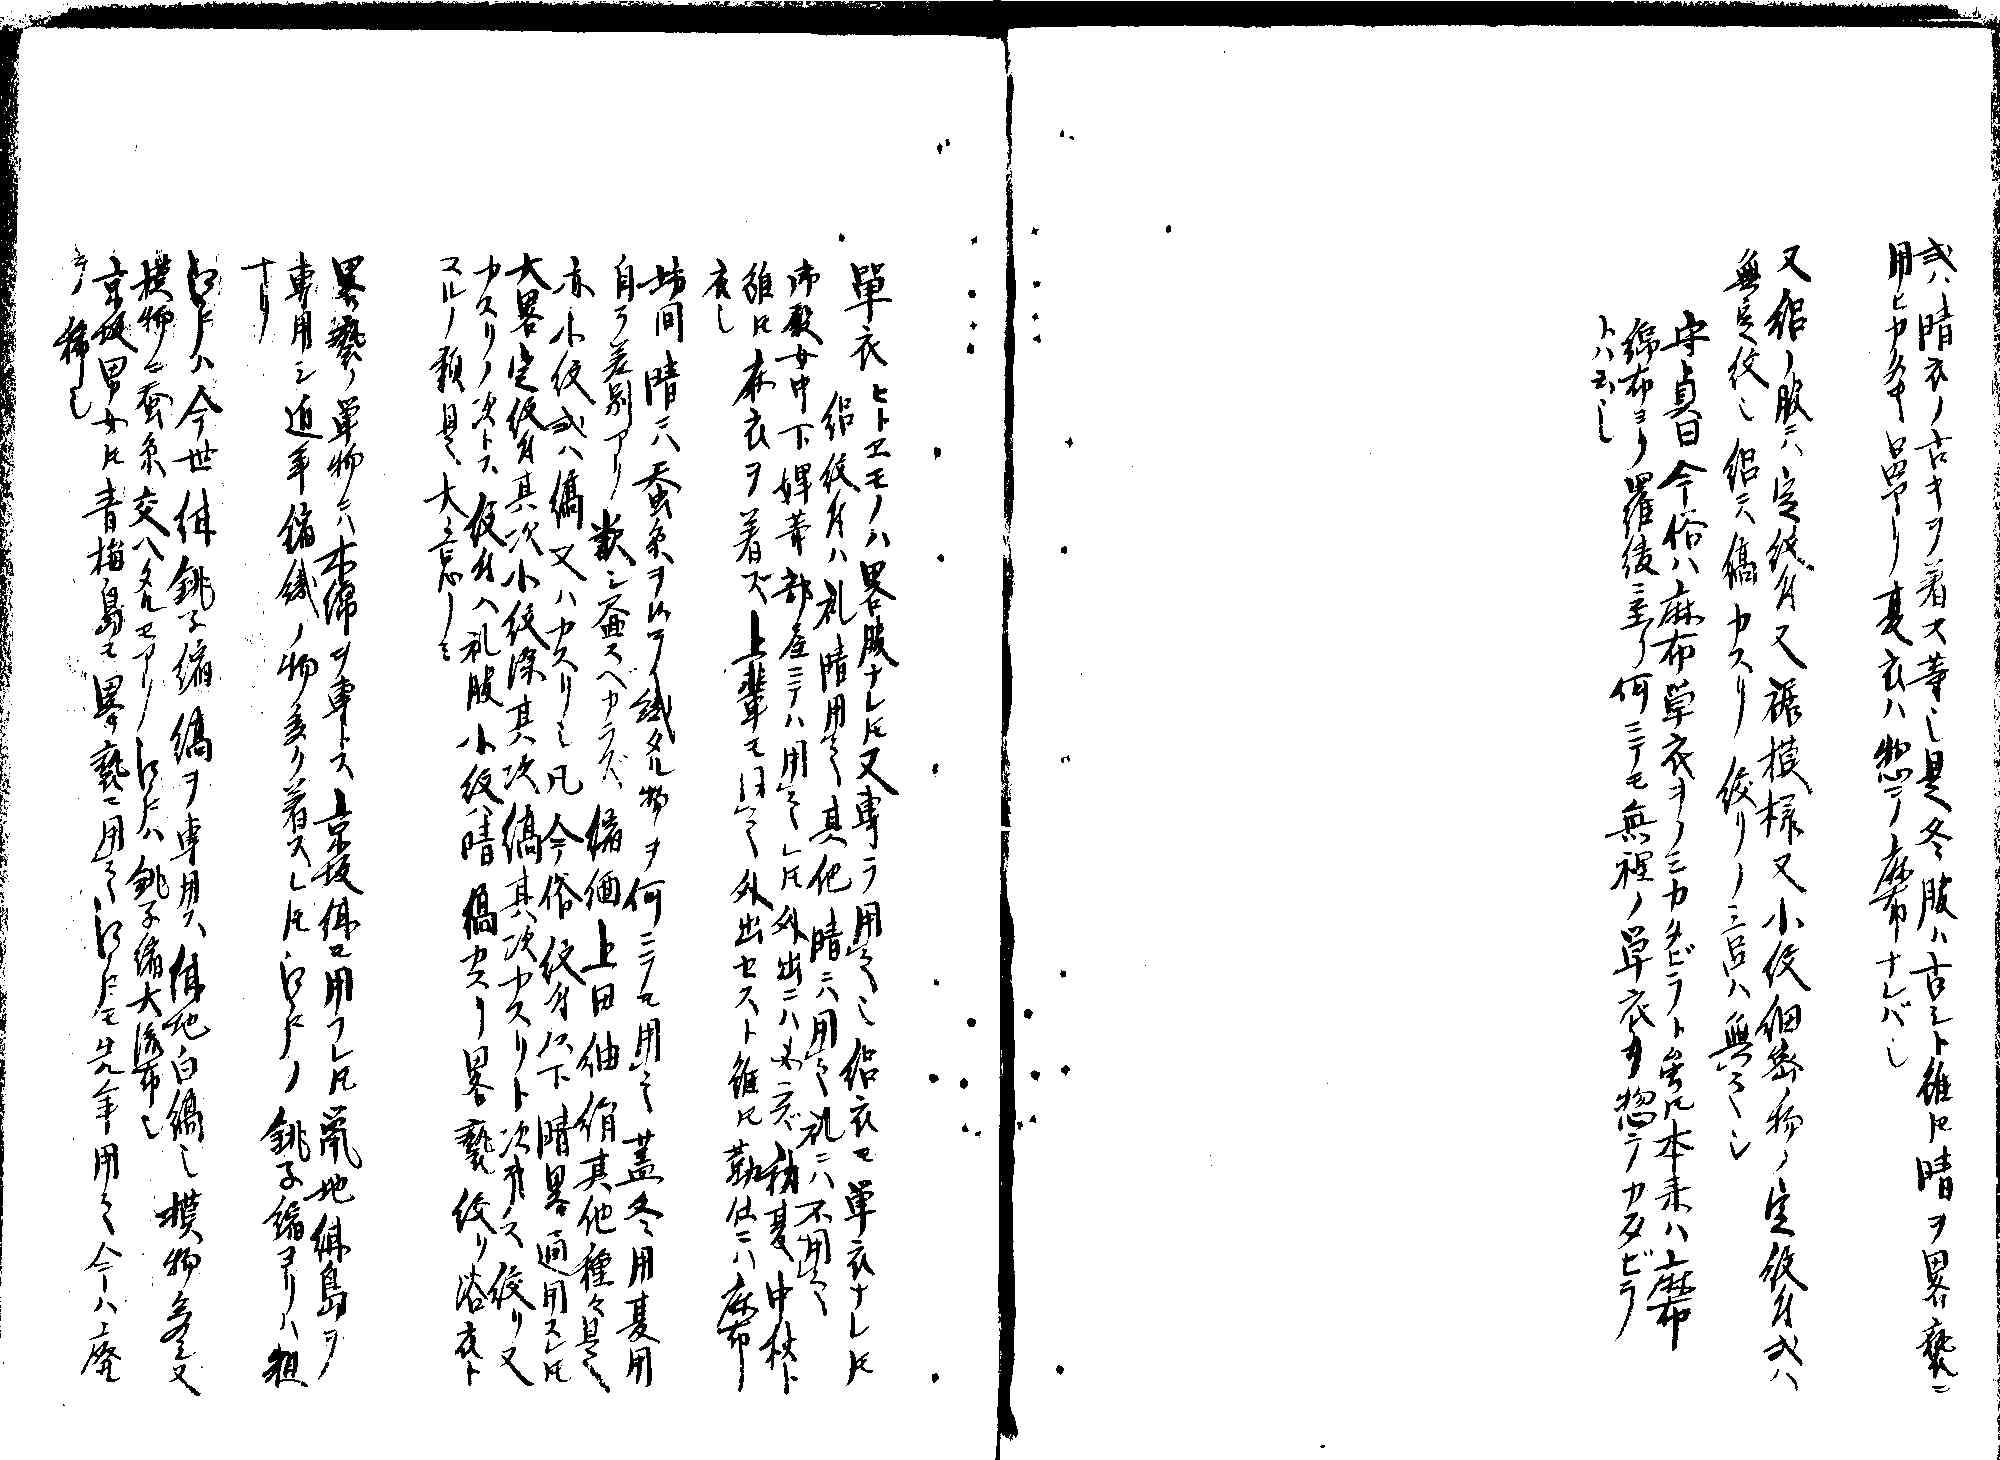 或ハ晴衣ノ古キヲ着ス等也是冬服ハ古シト雖ドモ晴ヲ畧褻ニ
用ヒカタキ品アリ夏衣ハ惣テ麻布ナレバ也
又絽ノ服ニハ定紋付又裾模様又小紋細密ノ物ノ定紋付或ハ
無定紋也絽ニハ縞カスリ絞リノ三品ハ無之也
守貞曰今俗ハ麻布単衣ヲノミカタビラト云ドモ本来ハ麻布
綿布ヨリ羅綾ニ至リ何ニテモ無裡ノ単衣ヲ惣テカタビラ
トハ云也
單衣 ヒトヱモノハ畧服ナレドモ又専ラ用之也絽衣モ単衣ナレドモ
絽紋付ハ礼晴用之其他晴ニハ用之礼ニハ不用之
御殿女中下婢等部屋ニテハ用之レドモ外出ニハ必ズ初夏中秋ト
雖ドモ麻衣ヲ着ズ上輩モ同之外出セスト雖ドモ勤仕ニハ麻布
衣也
坊間晴ニハ蚕糸ヲ以テ織タル物ヲ何ニテモ用之蓋冬用夏用
自ラ差別アリ歎シ益スベカラズ縮緬上田紬絹其他種々是ヲ
亦小紋或ハ縞又ハカスリ也凡今俗紋付以下晴畧通用スレドモ
大畧定紋付其次小紋染其次縞其次カスリト次第ス絞リ又
カスリノ次トス紋付ハ礼服小紋ハ晴縞カスリ畧褻絞リ浴衣ト
スルノ類是也大意ノミ
畧褻ノ単物ニハ木綿ヲ専トス京坂紺モ用フレドモ鼠地紺島ヲ
専用シ近年縮織ノ物多ク着スレドモ江戸ノ銚子縮ヨリハ粗
ナリ
江戸ハ今世紺銚子縮縞ヲ専用ス紺地白縞也模物無之又
模物ニ蚕糸交ヘタルモアリ江戸ハ銚子縮大流布也
京坂男女ドモ青梅島モ畧褻ニ用之江戸モ先年用之今ハ廃
テ稀也